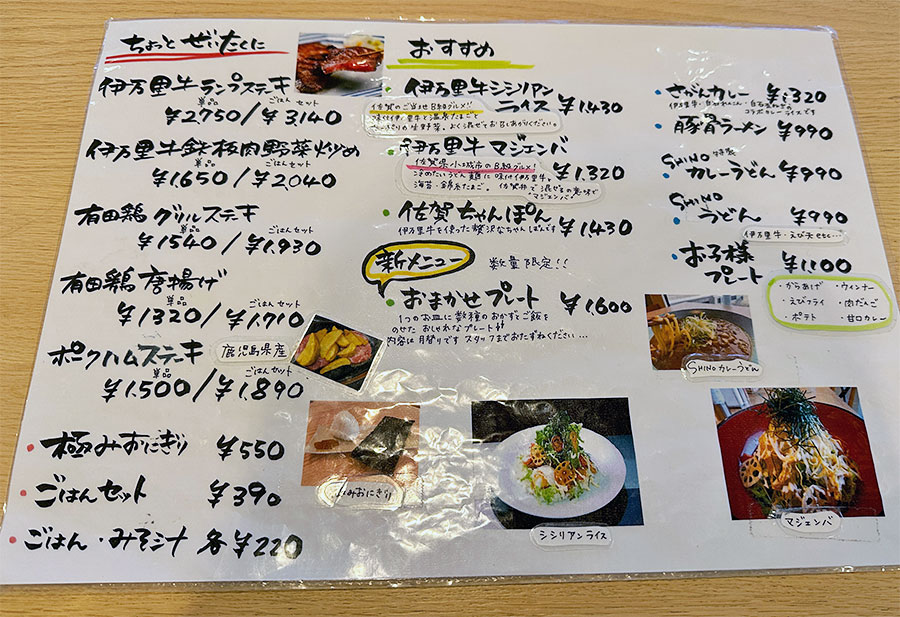 ちょっと ぜいたくに
伊万里牛ランプステーキ
単品 ごはんセット
¥2750/¥3140
伊万里牛鉄板肉野菜炒め
単品 ごはんセット
¥1.650/¥2040
有田鶏 グリルステーキ
単品 ごはんセット
¥1540/¥1.930
有田鶏 唐揚げ
単品 ごはんセット
¥1320/¥1.710
ポークハムステーキ 鹿児島県産
単品 ごはんセット
¥1.500/¥1.890
・極みおにぎり ¥550
・ごはんセット ¥390
・ごはん・みそ汁 各¥220
みおにぎり
おすすめ
・伊万里牛シシリアン
ライス ¥1.430
佐賀のご当地B級グルメ!!
生野菜。よく混ぜてお召しあがりください。
・伊万里牛マジェンバ
¥1.320
佐賀県小城市のB級グルメ!
味付け伊万里牛と
海苔・錦糸たまご。佐賀弁で混ぜるの意味で
"マジェンバ"
・佐賀ちゃんぽん ¥1.430
伊万里牛を使った贅沢なちゃんぽんです
新メニュー 数量限定!!
・おまかせプレート ¥1.600
1つのお皿に数種のおかずとご飯を
のせた おしゃれなプレート!!
内容は月替りです スタッフまでおたずねください…
シシリアンライス
・さがんカレー ¥1.320
コラボカレーライスです
・豚骨ラーメン ¥990
・SHINO特製
カレーうどん ¥990
・SHINO
うどん ¥990
伊万里牛・えび天 etc…
・お子様
プレート ¥1.100
・からあげ ・ウインナー
・えびフライ ・肉だんご
・ポテト ・甘口カレー
SHINOカレーうどん
マジェンバ